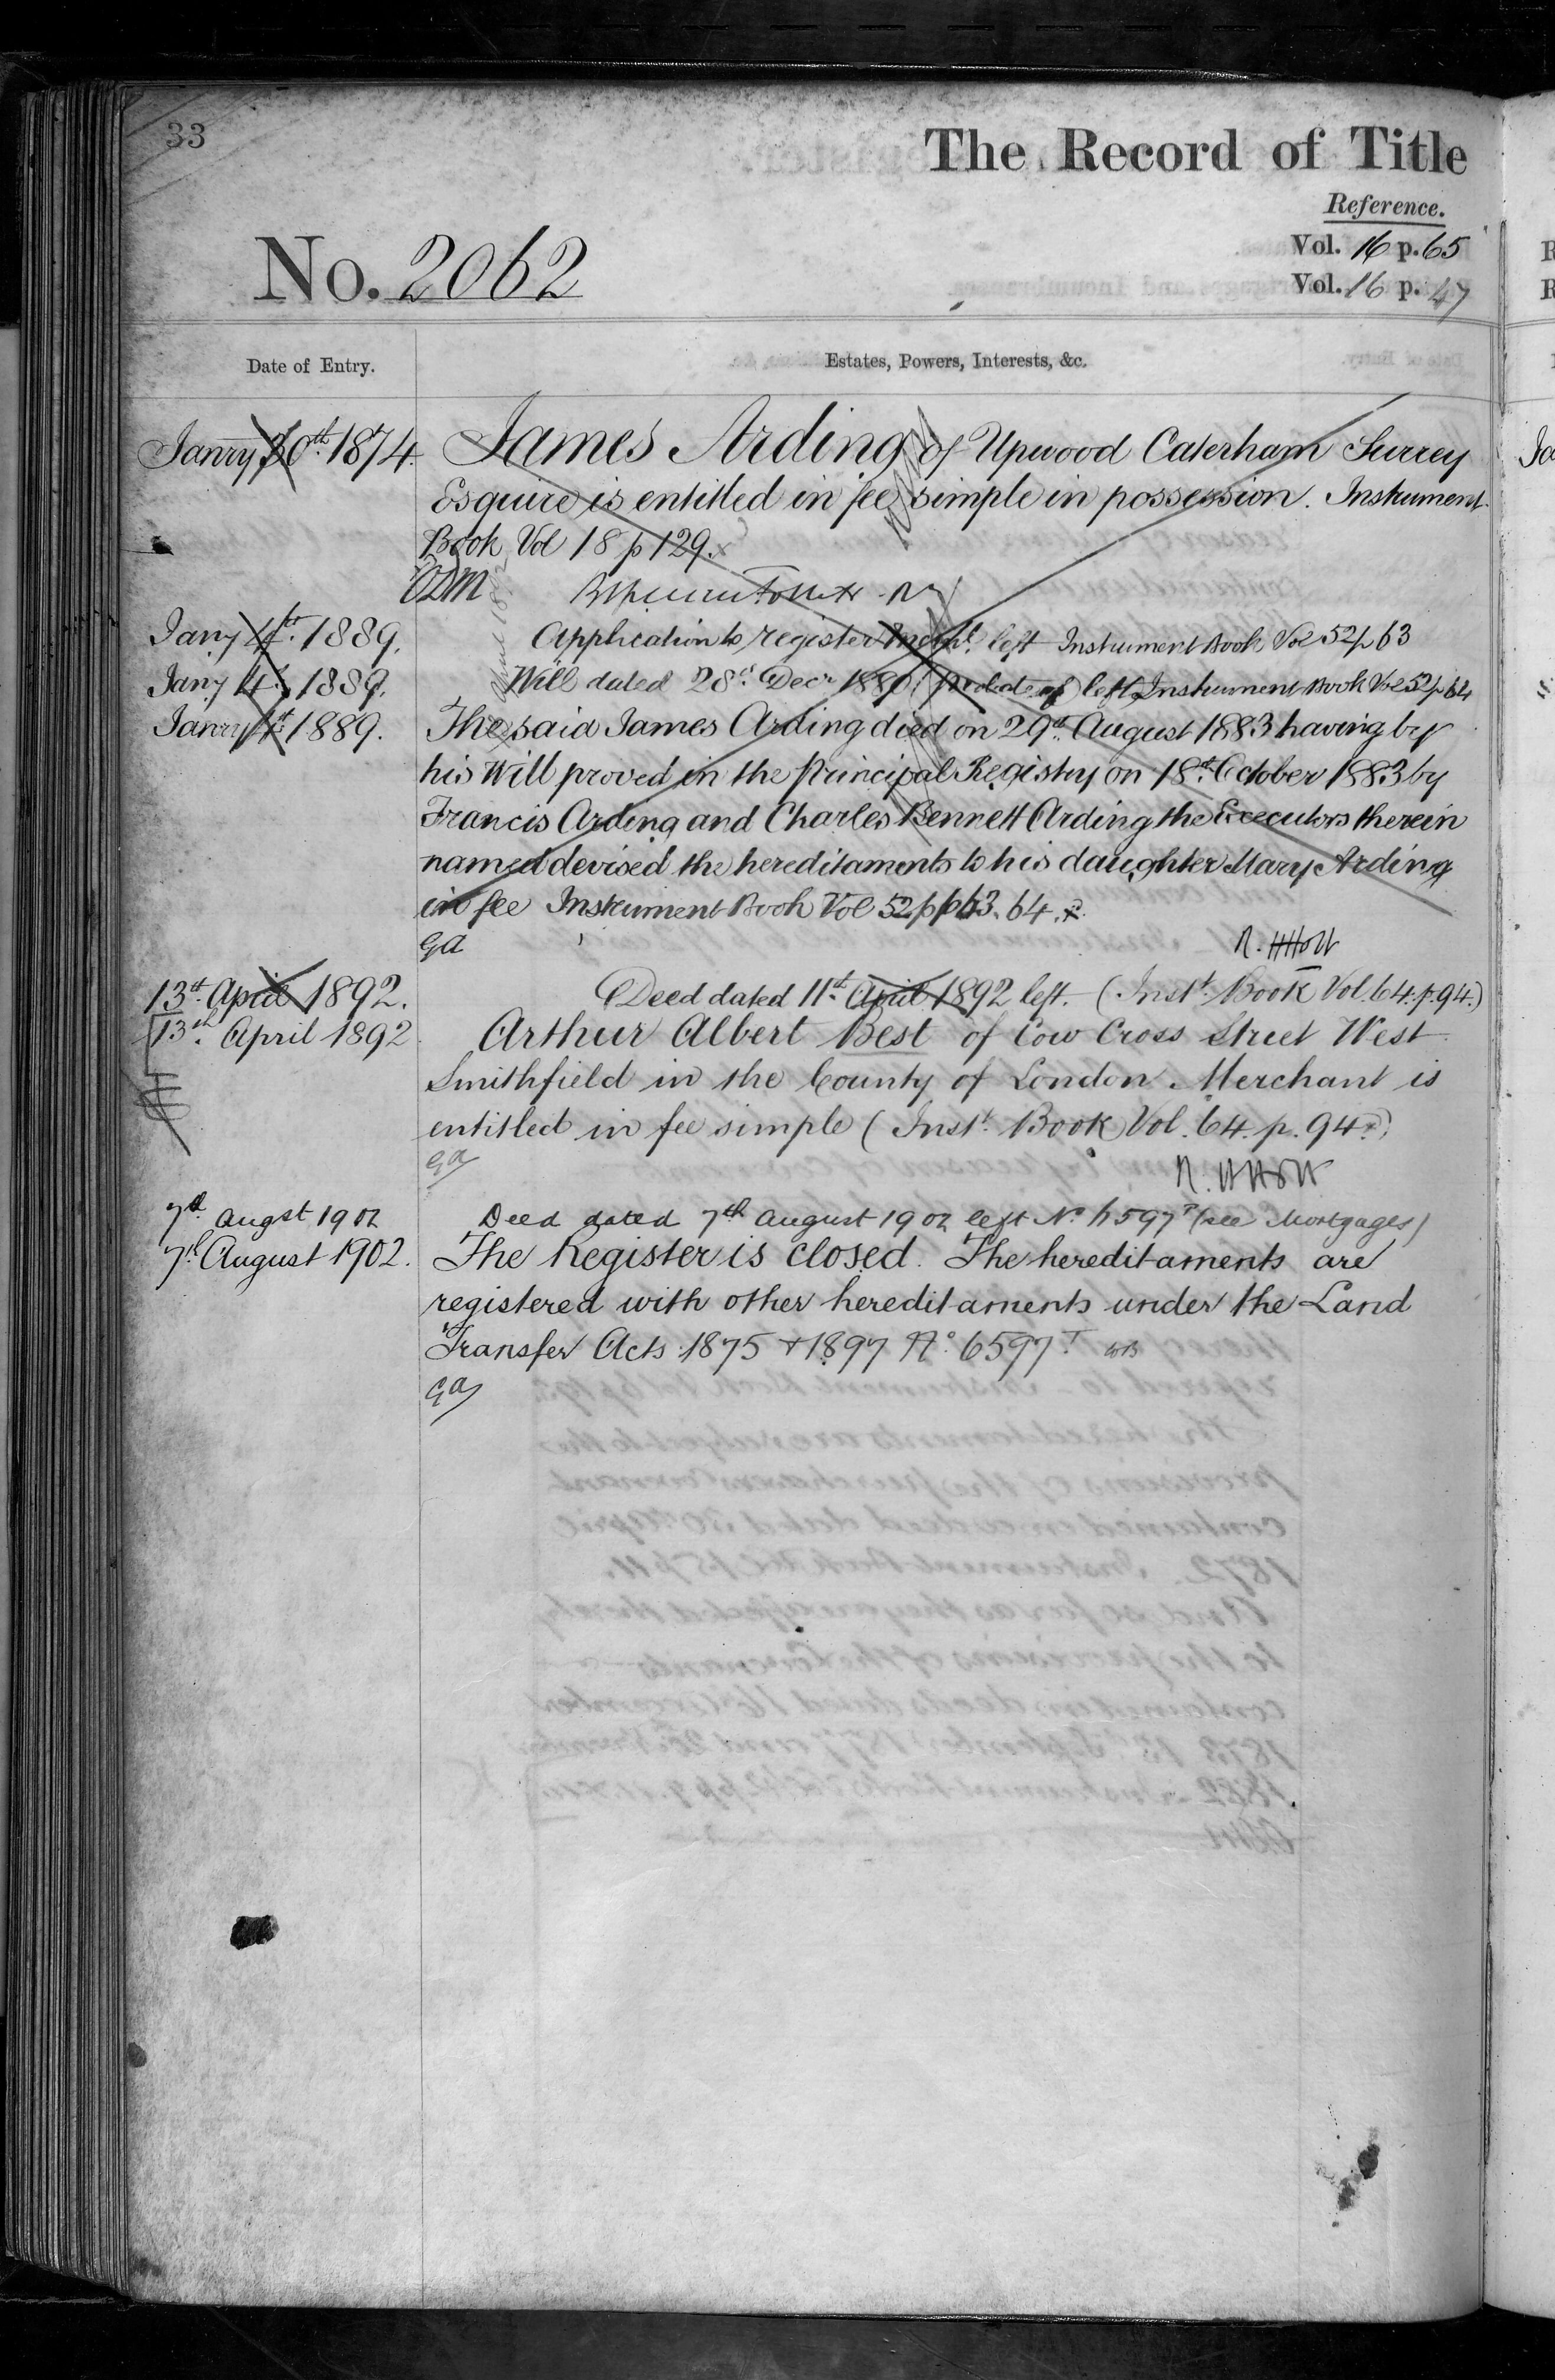 33
The Record of Title
Reference.
Vol. 16 p. 65
No. 2062
Vol. 16 p. 47
Date of Entry.
Estates, Powers, Interests, &c.
Janry 30th 1874. James Arding of Upwood Caterham Surrey
Esquire is entitled in fee simple in possession. Instrument
Book Vol 18 p 129.
ODM
Jany 4th 1889. Application to register left Instrument Book Vol 52 p 63
Jany 4th 1889. Will dated 28th Decr 1880 (Probate of) left Instrument Book Vol 52 p 64
Janry 4th 1889. The said James Arding died on 29th August 1883 having by
his Will proved in the Principal Registry on 18th October 1883 by
Francis Arding and Charles Bennett Arding the Executors therein
named devised the hereditaments to his daughter Mary Arding
in fee Instrument Book Vol 52 pp 63. 64.
GA R. H Holt
13th April 1892. Deed dated 11th April 1892 left. (Inst. Book Vol. 64. p. 94.)
13th April 1892 Arthur Albert Best of Cow Cross Street West
Smithfield in the County of London Merchant is
entitled in fee simple (Inst. Book Vol. 64. p. 94.)
GA
R. H Holt
7th Augst 1902 Deed dated 7th August 1902 left No 6597T (see Mortgages)
7th August 1902. The Register is closed. The hereditaments are
registered with other hereditaments under the Land
Transfer Acts 1875 + 1897 No. 6597T
GA